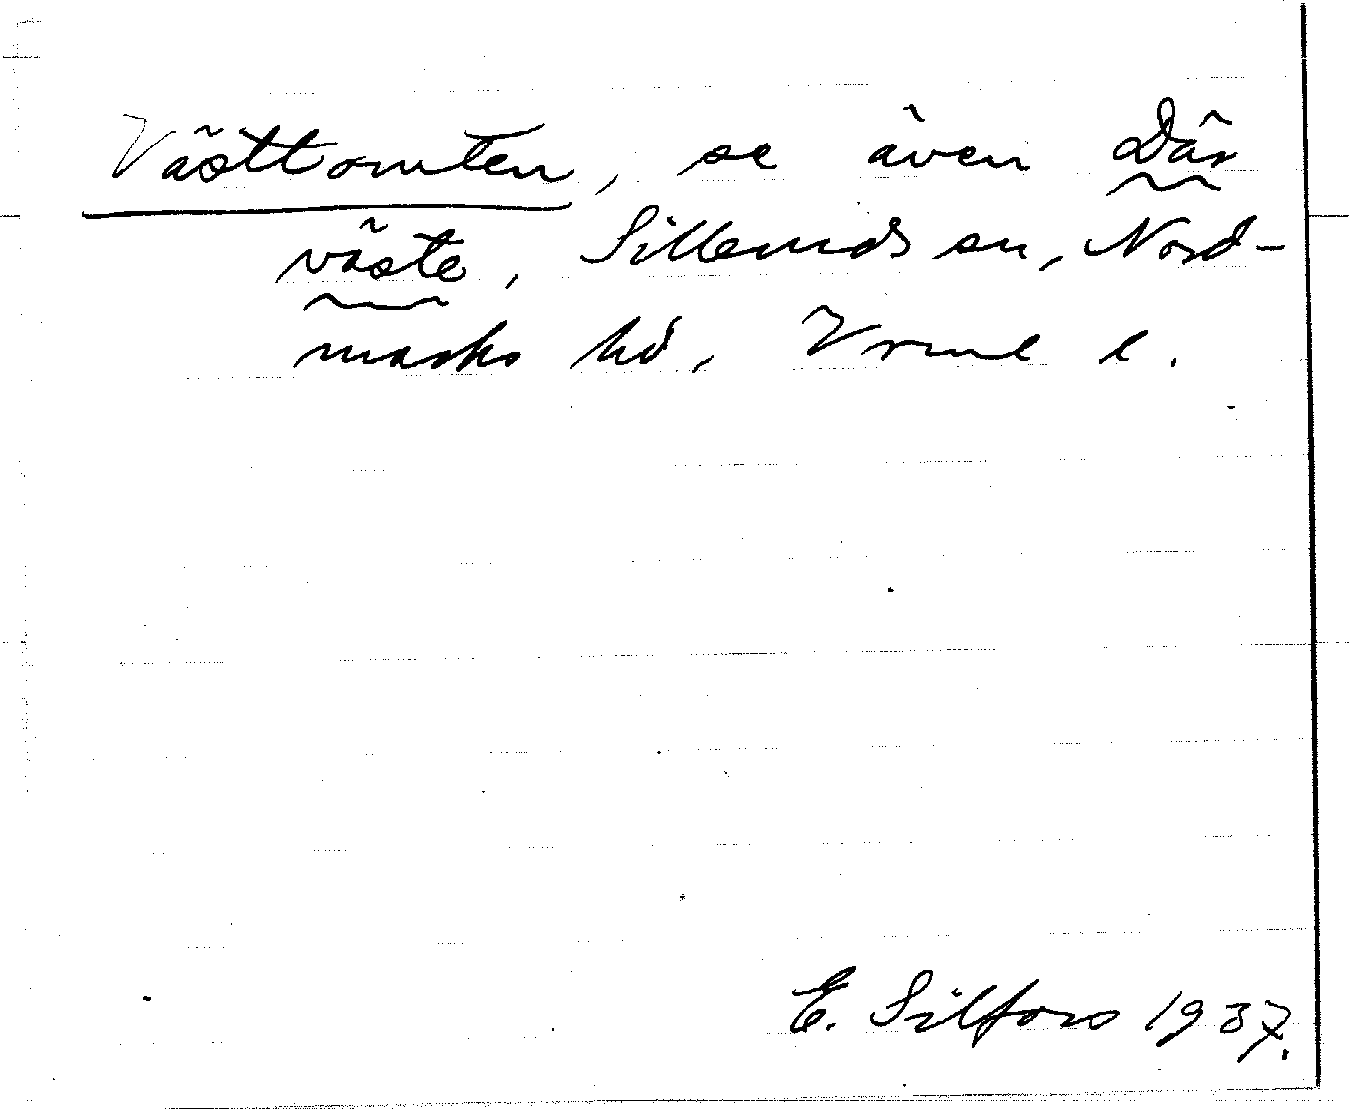 Västtomten, se även Där
väste, Sillemds sn, Nord-
marks hd, Vrml l.
E. Silfors 1937.